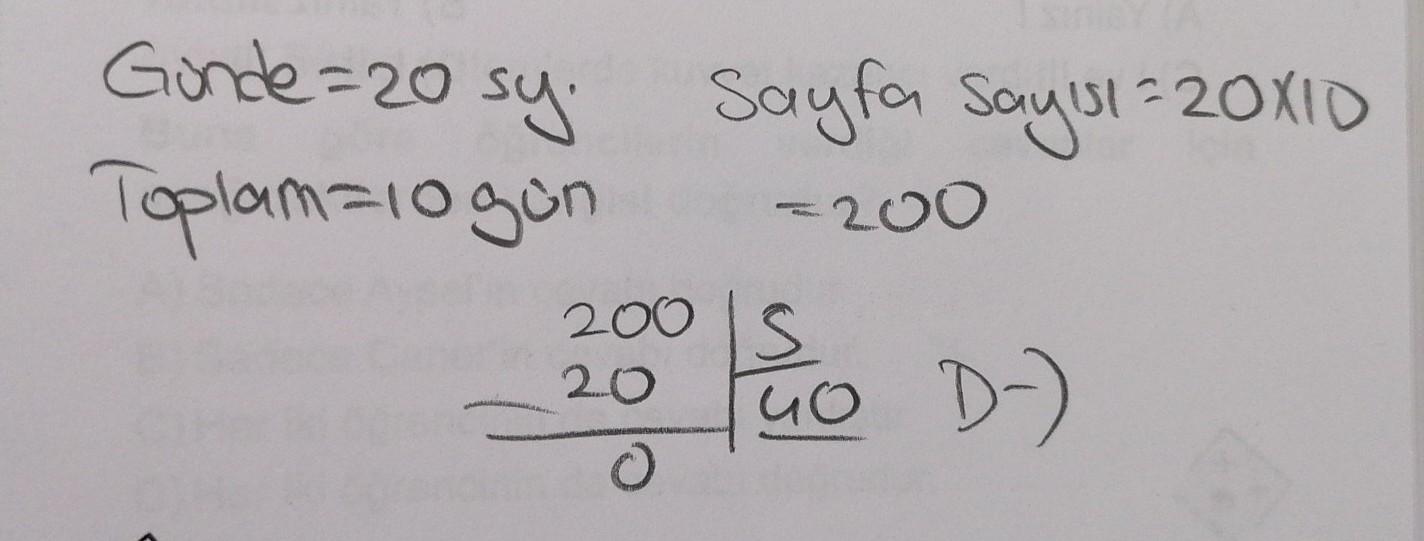 Günde=20 sy. Sayfa Sayısı=20x10
Toplam=10 gün =200
200 5
20 40 D-)
0